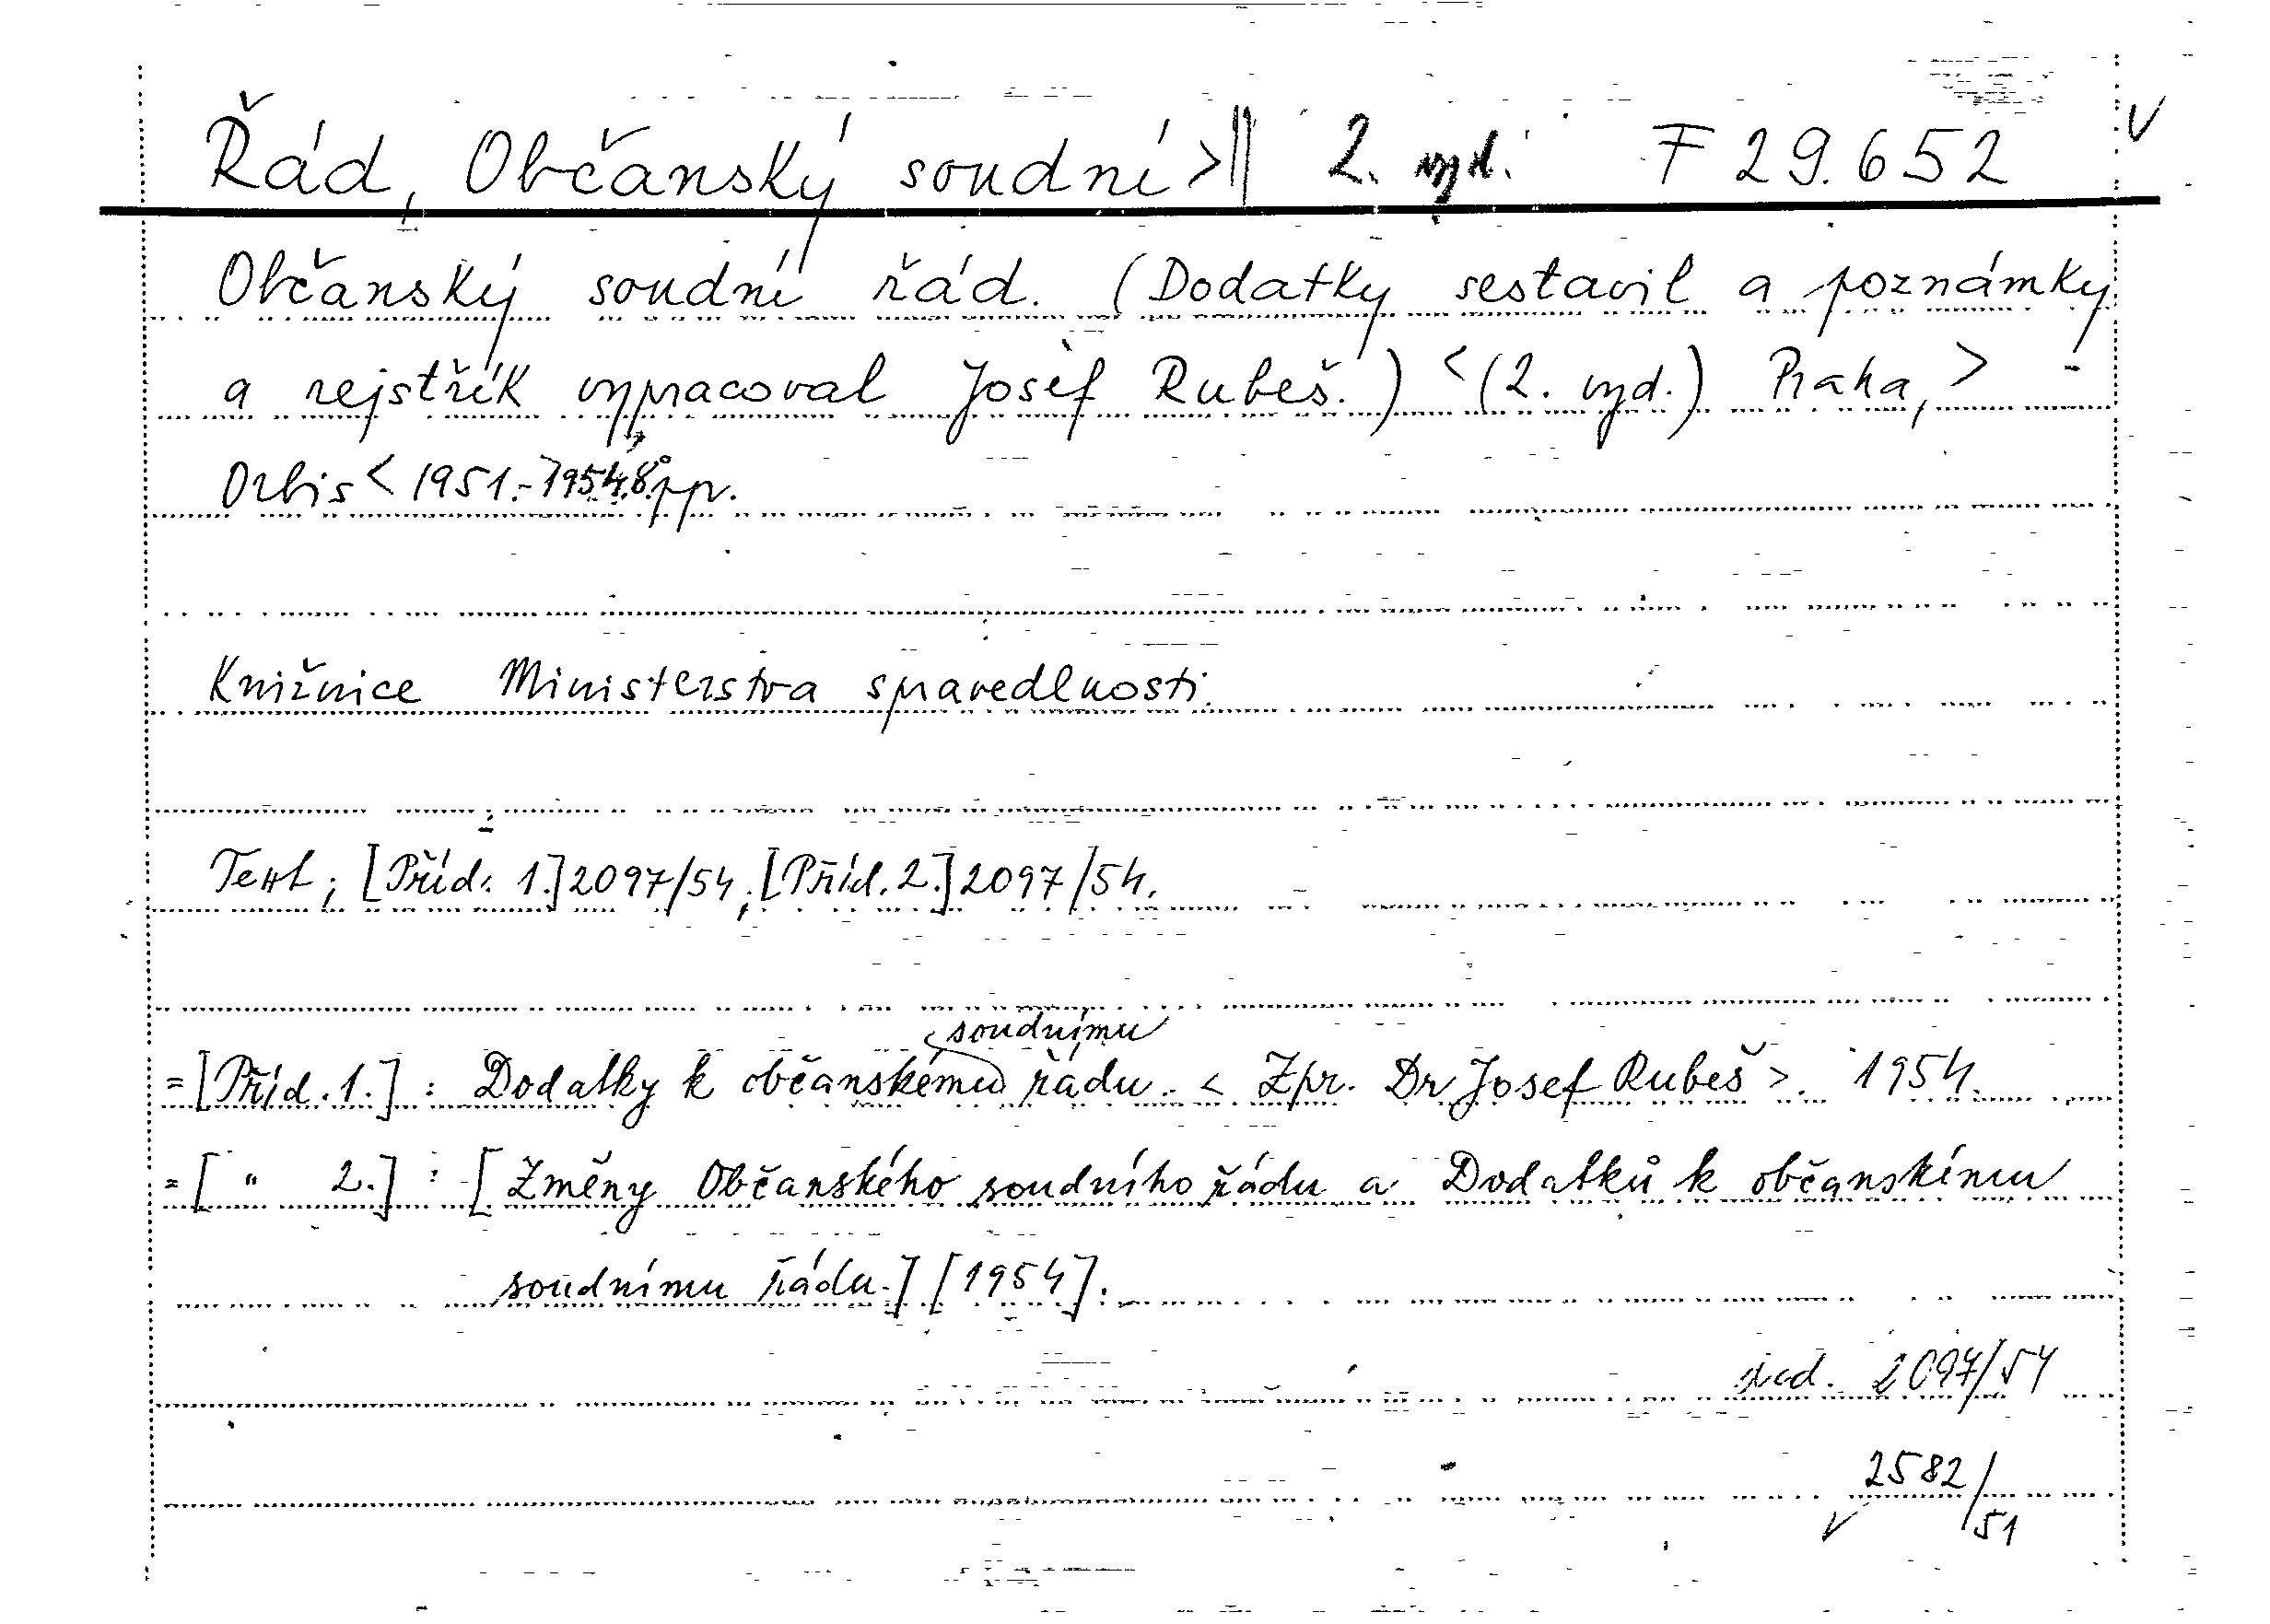 Řád, Občanský soudní > || 2. vyd. F 29.652 V
Občanský soudní řád. (Dodatky sestavil a poznámky
a rejstřík vypracoval Josef Rubeš.) <(2. vyd.) Praka, >
Orbis < 1951.-1954. 8° pp.
Knižnice Ministerstva spravedlnosti.
Text; [Příd. 1.] 2097/54; [Příd. 2.] 2097/54.
soudnímu
= [Příd. 1.] : Dodatky k občanskému řádu. < Zpr. Dr Josef Rubeš >. 1954.
= [ " 2.] : [Změny Občanského soudního řádu a Dodatků k občanskému
soudnímu řádu.] [1954].
2097/54
2582/51